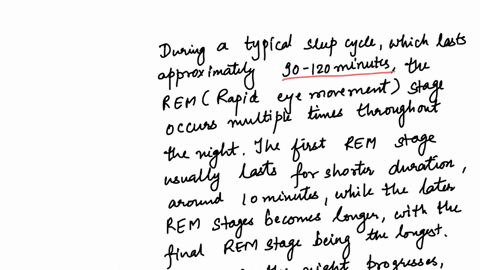 During a typical sleep cycle, which lasts
approximately 90-120 minutes, the
REM (Rapid eye movement) stage
occurs multiple times throughout
the night. The first REM stage
usually lasts for shorter duration,
around 10 minutes, while the later
REM stages becomes longer, with the
final REM stage being the longest.
the night progresses,